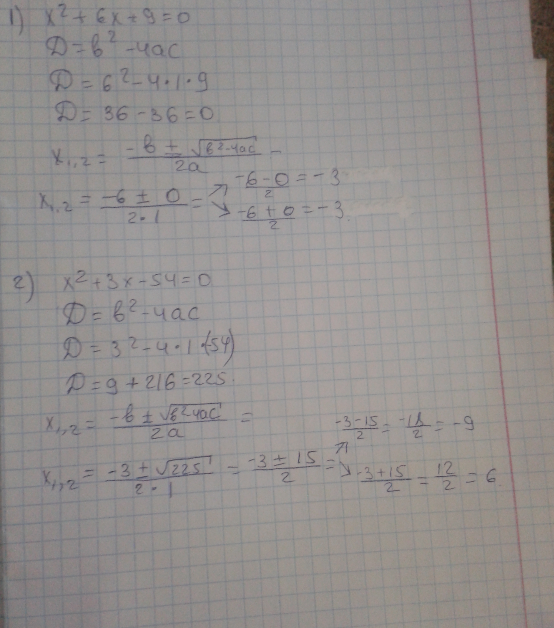 1) x² + 6x + 9 = 0
D = b² - 4ac
D = 6² - 4·1·9
D = 36 - 36 = 0
x₁,₂ = (-b ± √(b²-4ac))/2a -
x₁,₂ = (-6 ± 0)/(2·1) = ↗ (-6-0)/2 = -3
↘ (-6+0)/2 = -3.
2) x² + 3x - 54 = 0
D = b² - 4ac
D = 3² - 4·1·(54)
D = 9 + 216 = 225.
x₁,₂ = (-b ± √(b²-4ac))/2a =
x₁,₂ = (-3 ± √225)/(2·1) = (-3 ± 15)/2 = ↗ (-3-15)/2 = -18/2 = -9
↘ (-3+15)/2 = 12/2 = 6.